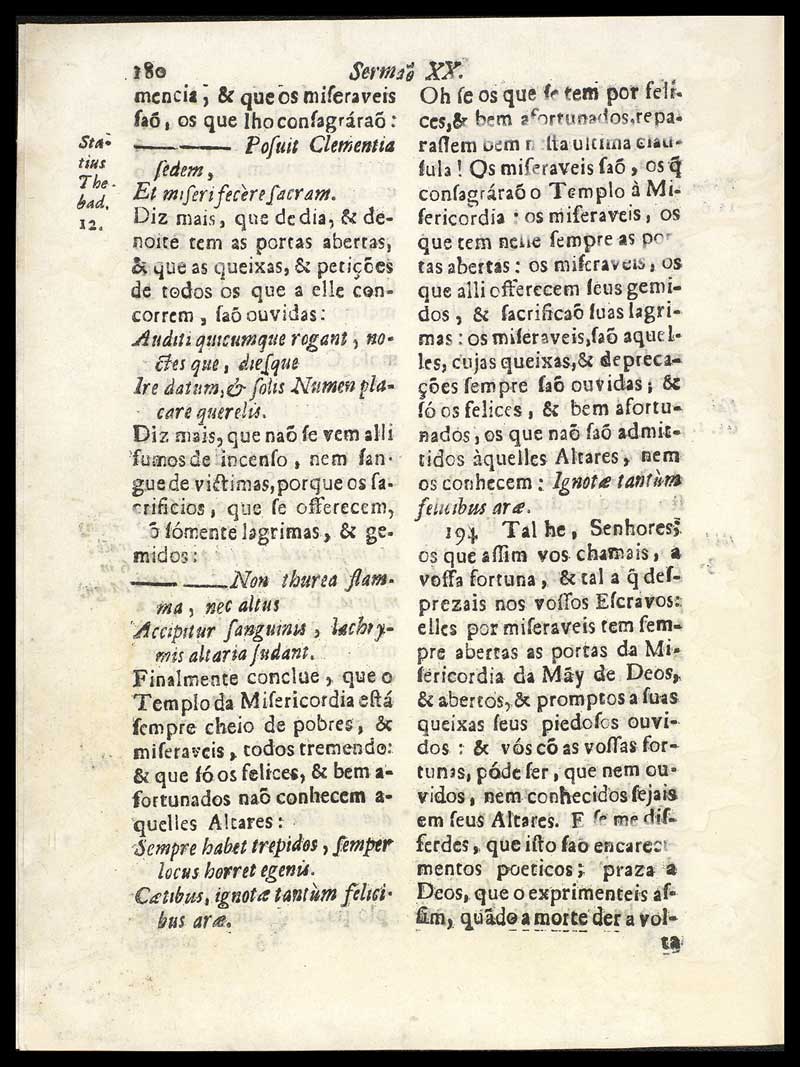 180
Sermaõ XX.
mencia, & que os miſeraveis
ſaõ, os que lho conſagráraõ:
——— Poſuit Clementia
ſedem,
Et miſeri fecère ſacram.
Diz mais, que de dia, & de-
noite tem as portas abertas,
& que as queixas, & petições
de todos os que a elle con-
correm, ſaõ ouvidas:
Auditi quicumque rogant, no-
ctes que, dieſque
Ire datum, & ſolis Numen pla-
care querelis.
Diz mais, que naõ ſe vem alli
fumos de incenſo, nem ſan-
gue de victimas, porque os ſa-
crificios, que ſe offerecem,
õ ſómente lagrimas, & ge-
midos:
——— Non thurea flam-
ma, nec altus
Accipitur ſanguinis, lachry-
mis altaria ſudant.
Finalmente conclue, que o
Templo da Miſericordia eſtá
ſempre cheio de pobres, &
miſeraveis, todos tremendo:
& que ſó os felices, & bem a-
fortunados naõ conhecem a-
quelles Altares:
Sempre habet trepidos, ſemper
locus horret egenis.
Cætibus, ignotæ tantùm felici-
bus aræ.
Sta-
tius
The-
bad.
12.
Oh ſe os que ſe tem por feli-
ces, & bem afortunados, repa-
raſſem bem n ſta ultima clau-
ſula! Os miſeraveis ſaõ, os q̃
conſagráraõ o Templo à Mi-
ſericordia: os miſeraveis, os
que tem nelle ſempre as por
tas abertas: os miſeraveis, os
que alli offerecem ſeus gemi-
dos, & ſacrificaõ ſuas lagri-
mas: os miſeraveis, ſaõ aquel-
les, cujas queixas, & depreca-
ções ſempre ſaõ ouvidas; &
ſó os felices, & bem afortu-
nados, os que naõ ſaõ admit-
tidos àquelles Altares, nem
os conhecem: Ignotæ tantùm
felicibus aræ.
194 Tal he, Senhores,
os que aſſim vos chamais, a
voſſa fortuna, & tal a q̃ deſ-
prezais nos voſſos Eſcravos:
elles por miſeraveis tem ſem-
pre abertas as portas da Mi-
ſericordia da Mãy de Deos,
& abertos, & promptos a ſuas
queixas ſeus piedoſos ouvi-
dos: & vós cõ as voſſas for-
tunas, póde ſer, que nem ou-
vidos, nem conhecidos ſejais
em ſeus Altares. E ſe me diſ-
ſerdes, que iſto ſaõ encareci
mentos poeticos; praza a
Deos, que o exprimenteis aſ-
ſim, quãdo a morte der a vol-
ta